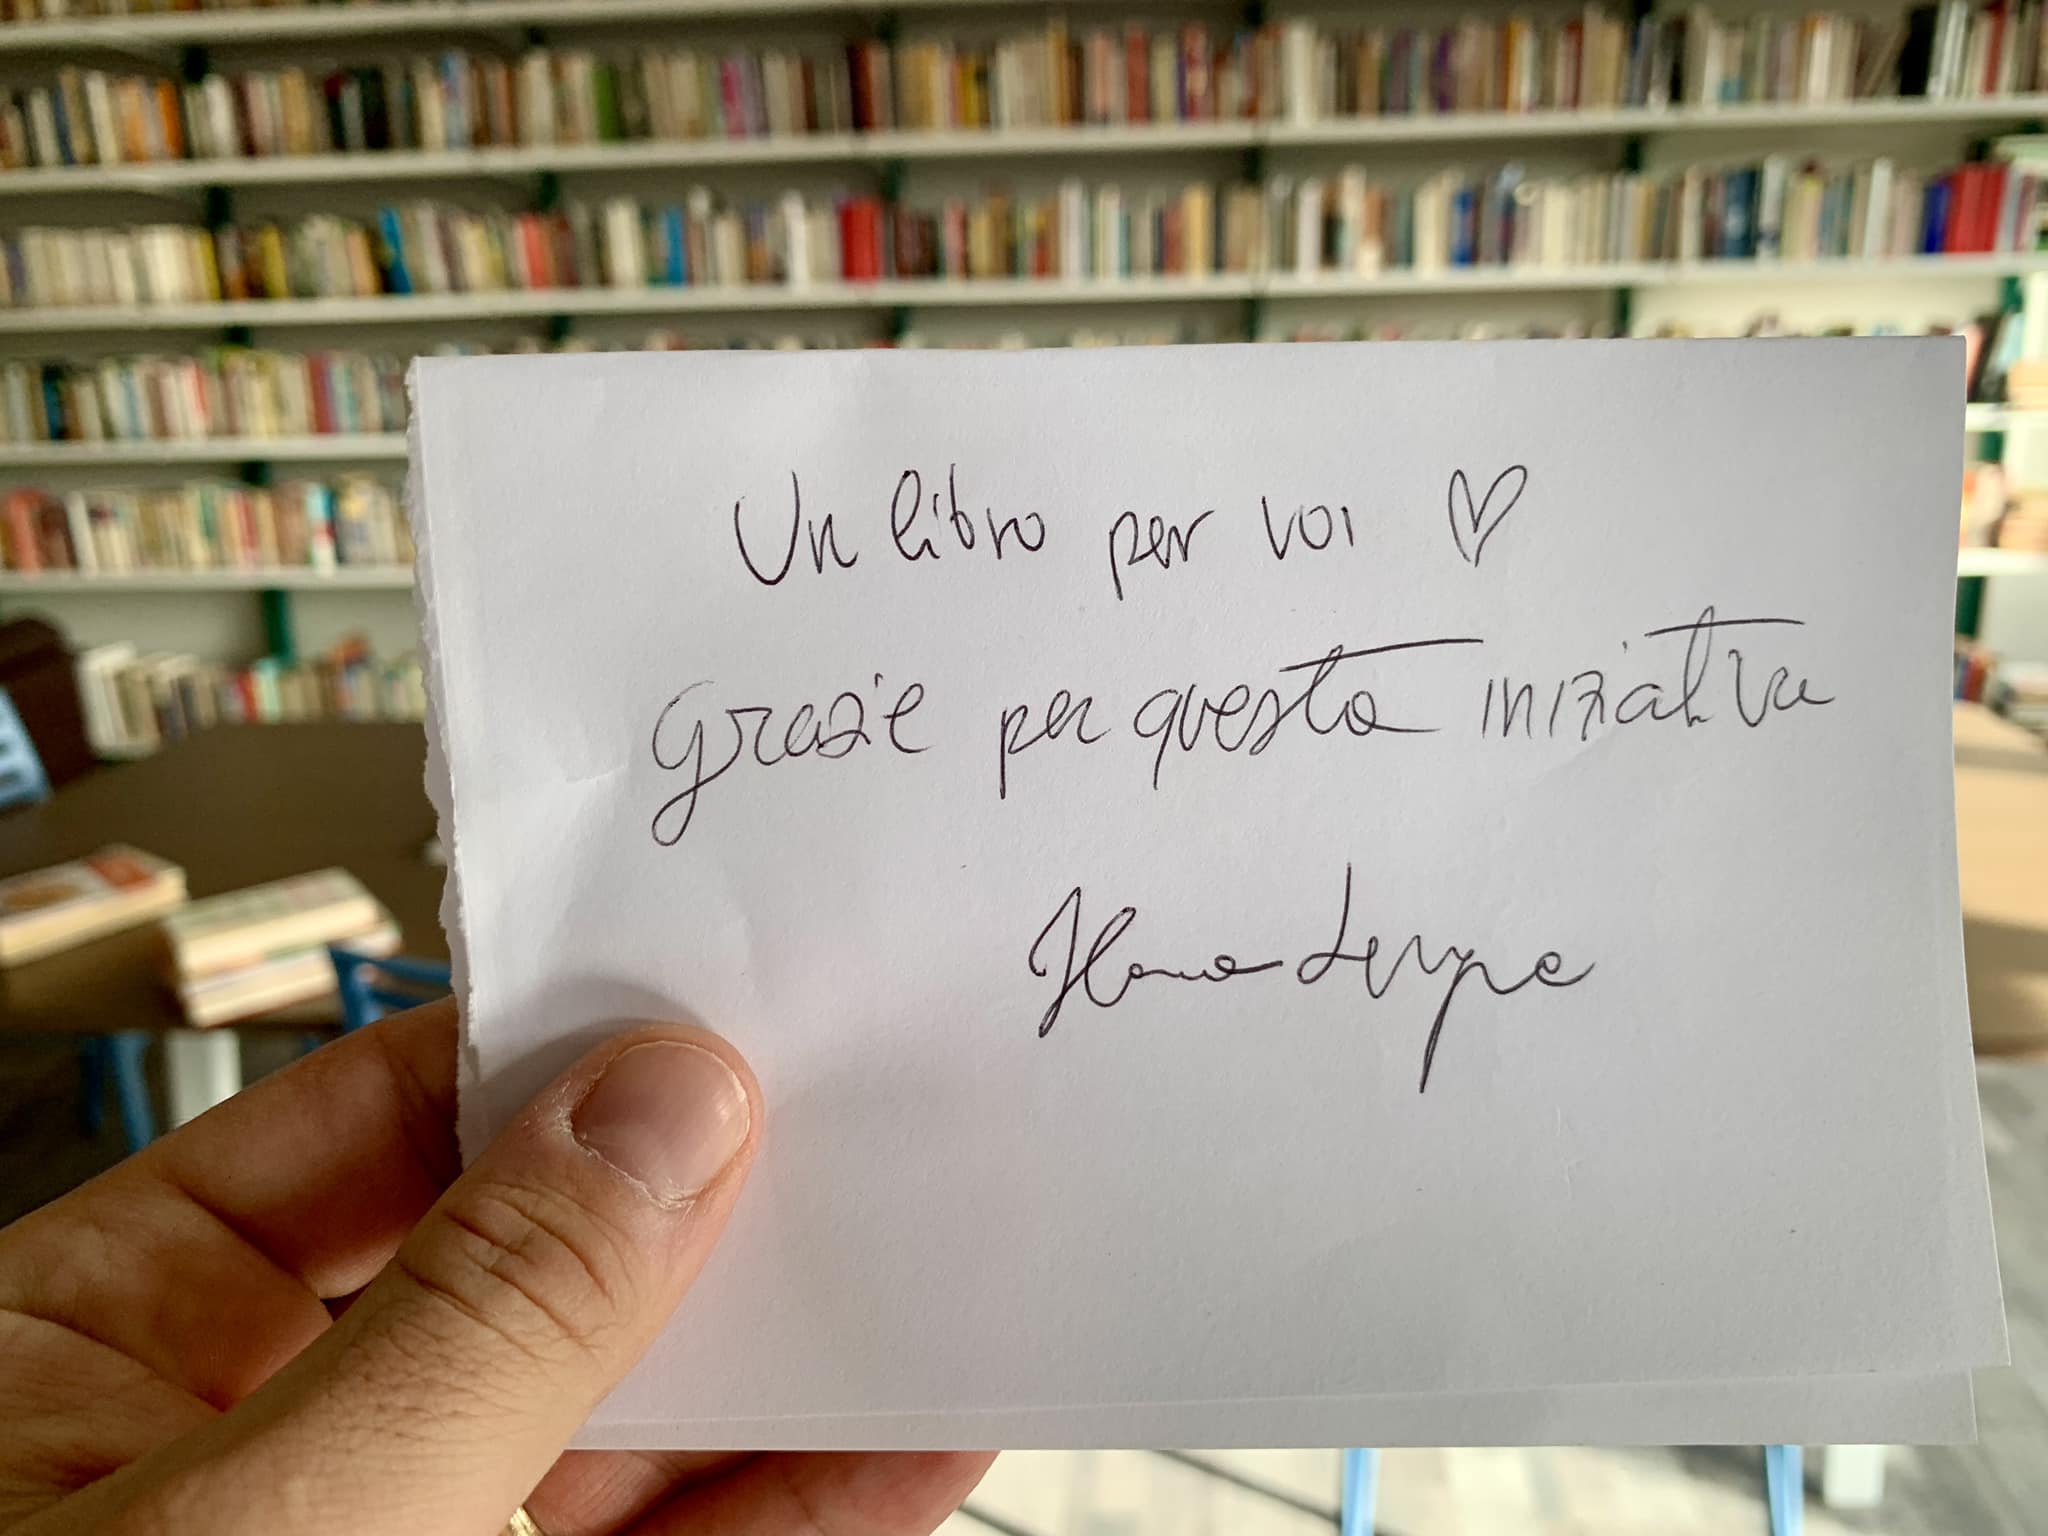 Un libro per voi ♡
Grazie per questa iniziativa